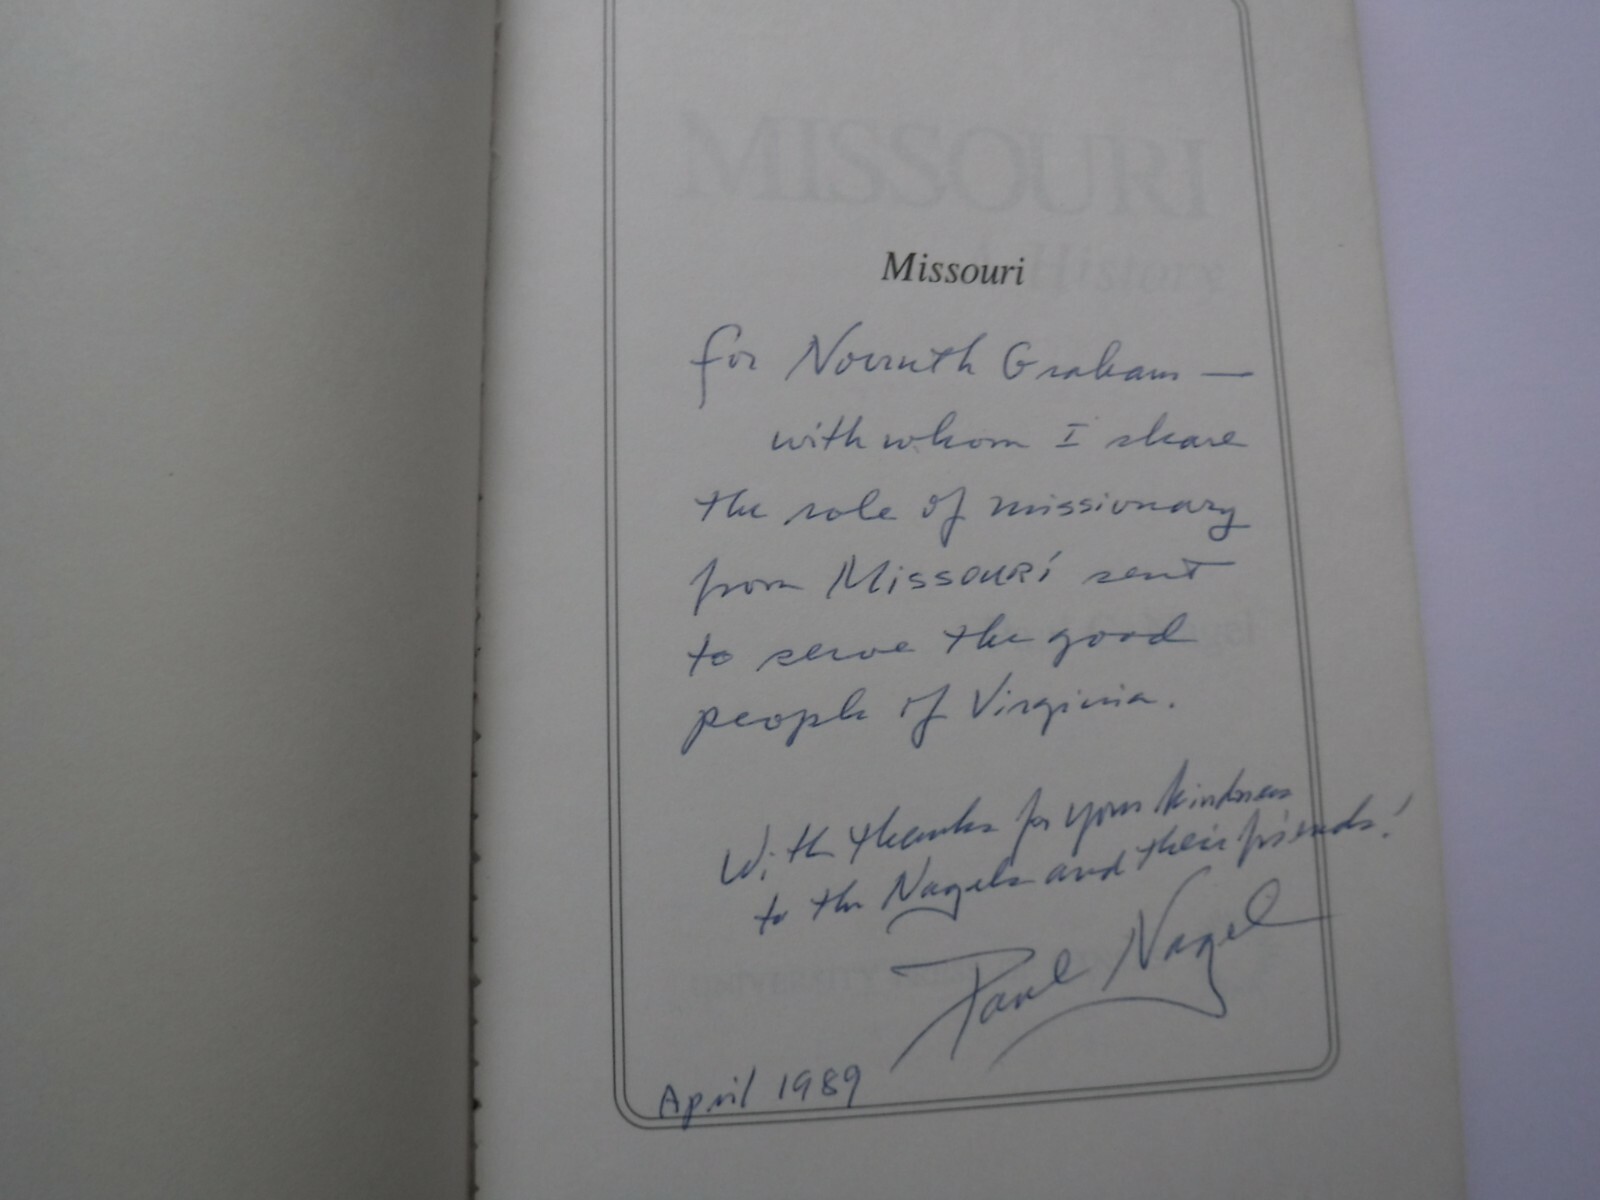 MISSOURI
History
Missouri
for Graham —
with whom I share
the role of missionary
from Missouri sent
to serve the good
people of Virginia.
With thanks for your kindness
to the Nagels and their friends!
Paul Nagel
UNIVERSITY
April 1989